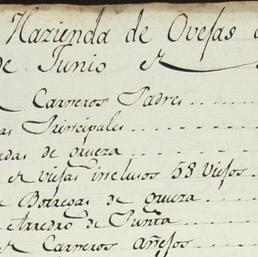 Hazienda de Ovejas
de Junio
Carneros Padres
Principales
de
viejas inclusos 58 Viejos
Borregas de
Arredro de Punta
Carneros añejos